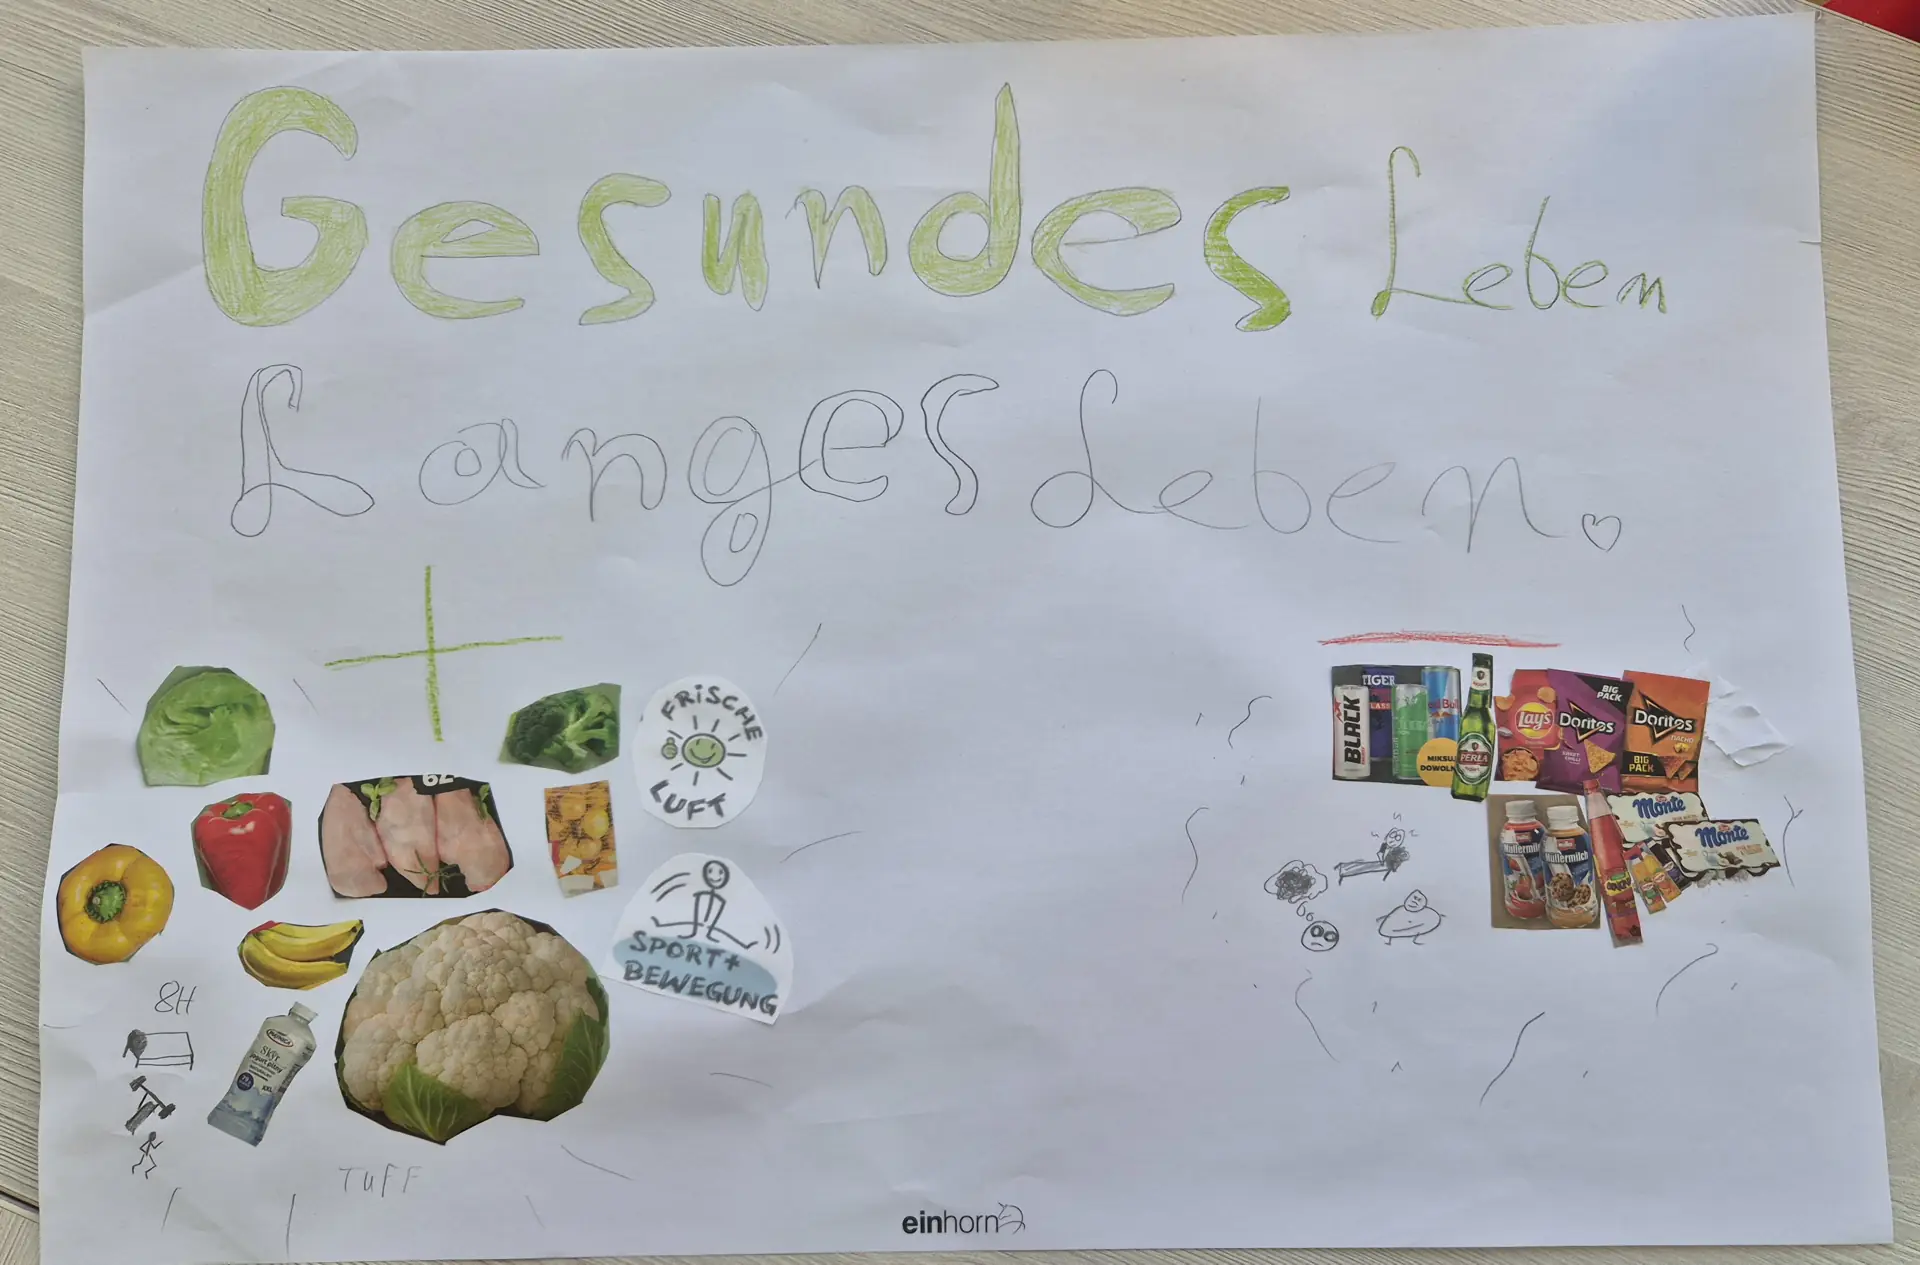 Gesundes Leben
Langes Leben.
FRISCHE
LUFT
SPORT+
BEWEGUNG
8H
Skyr
jogurt pitny
XXL
TUFF
TIGER
BLACK
Red Bull
MIKSUJ
DOWOLN
PERŁA
Lay's
BIG
PACK
Doritos
SWEET
CHILLI
Doritos
NACHO
BIG
PACK
Müllermilch
Müllermilch
Monte
Monte
einhorn